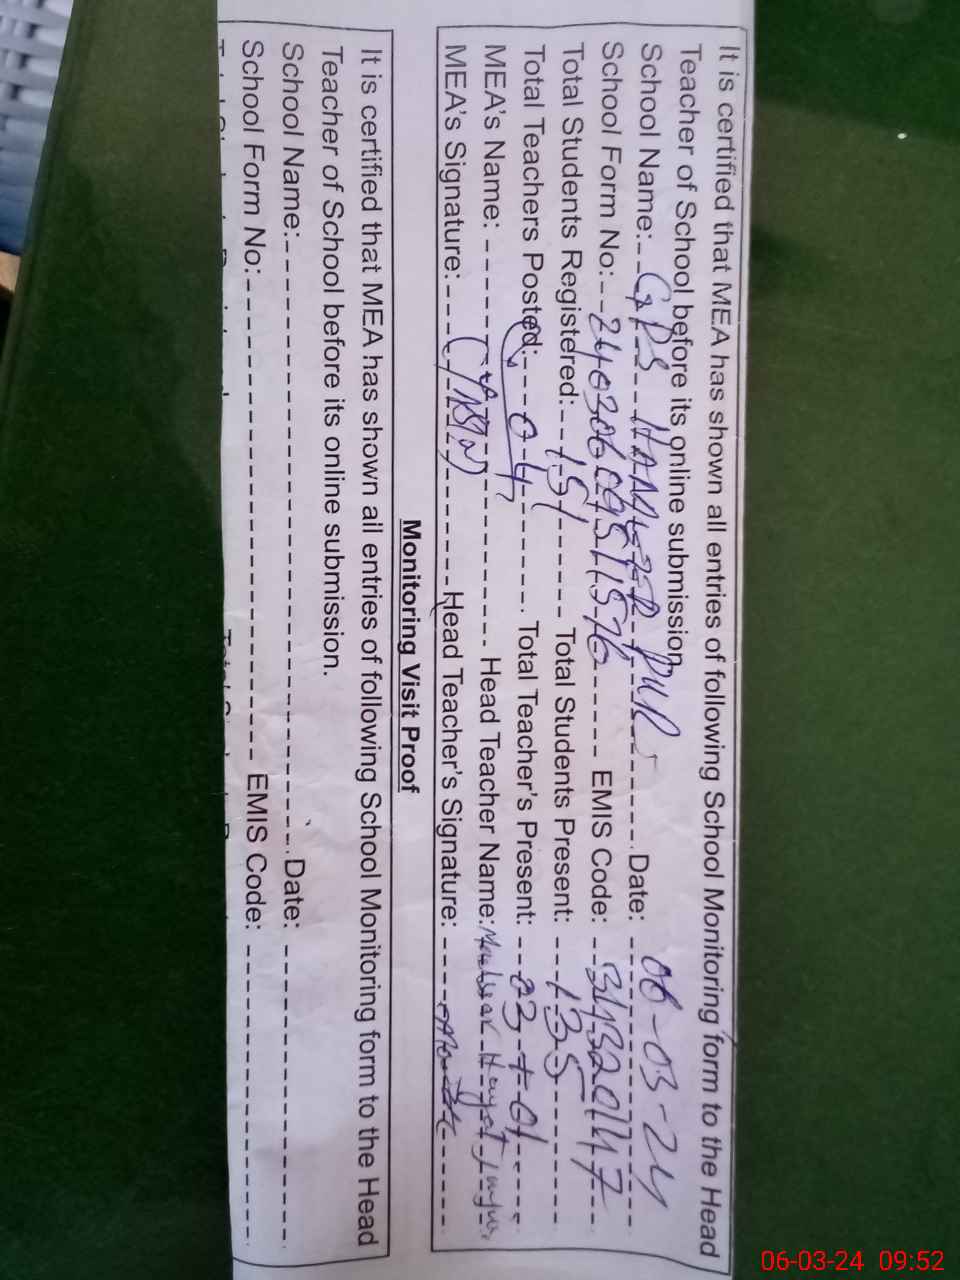 It is certified that MEA has shown all entries of following School Monitoring form to the Head
Teacher of School before its online submission.
School Name: GPS Date: 06-03-24
School Form No: EMIS Code:
Total Students Registered: 151 Total Students Present: 135
Total Teachers Posted: 04 Total Teacher's Present: 03+01
MEA's Name: Head Teacher Name: Hayat
MEA's Signature: Head Teacher's Signature:
Monitoring Visit Proof
It is certified that MEA has shown all entries of following School Monitoring form to the Head
Teacher of School before its online submission.
School Name: Date:
School Form No: EMIS Code:
06-03-24 09:52